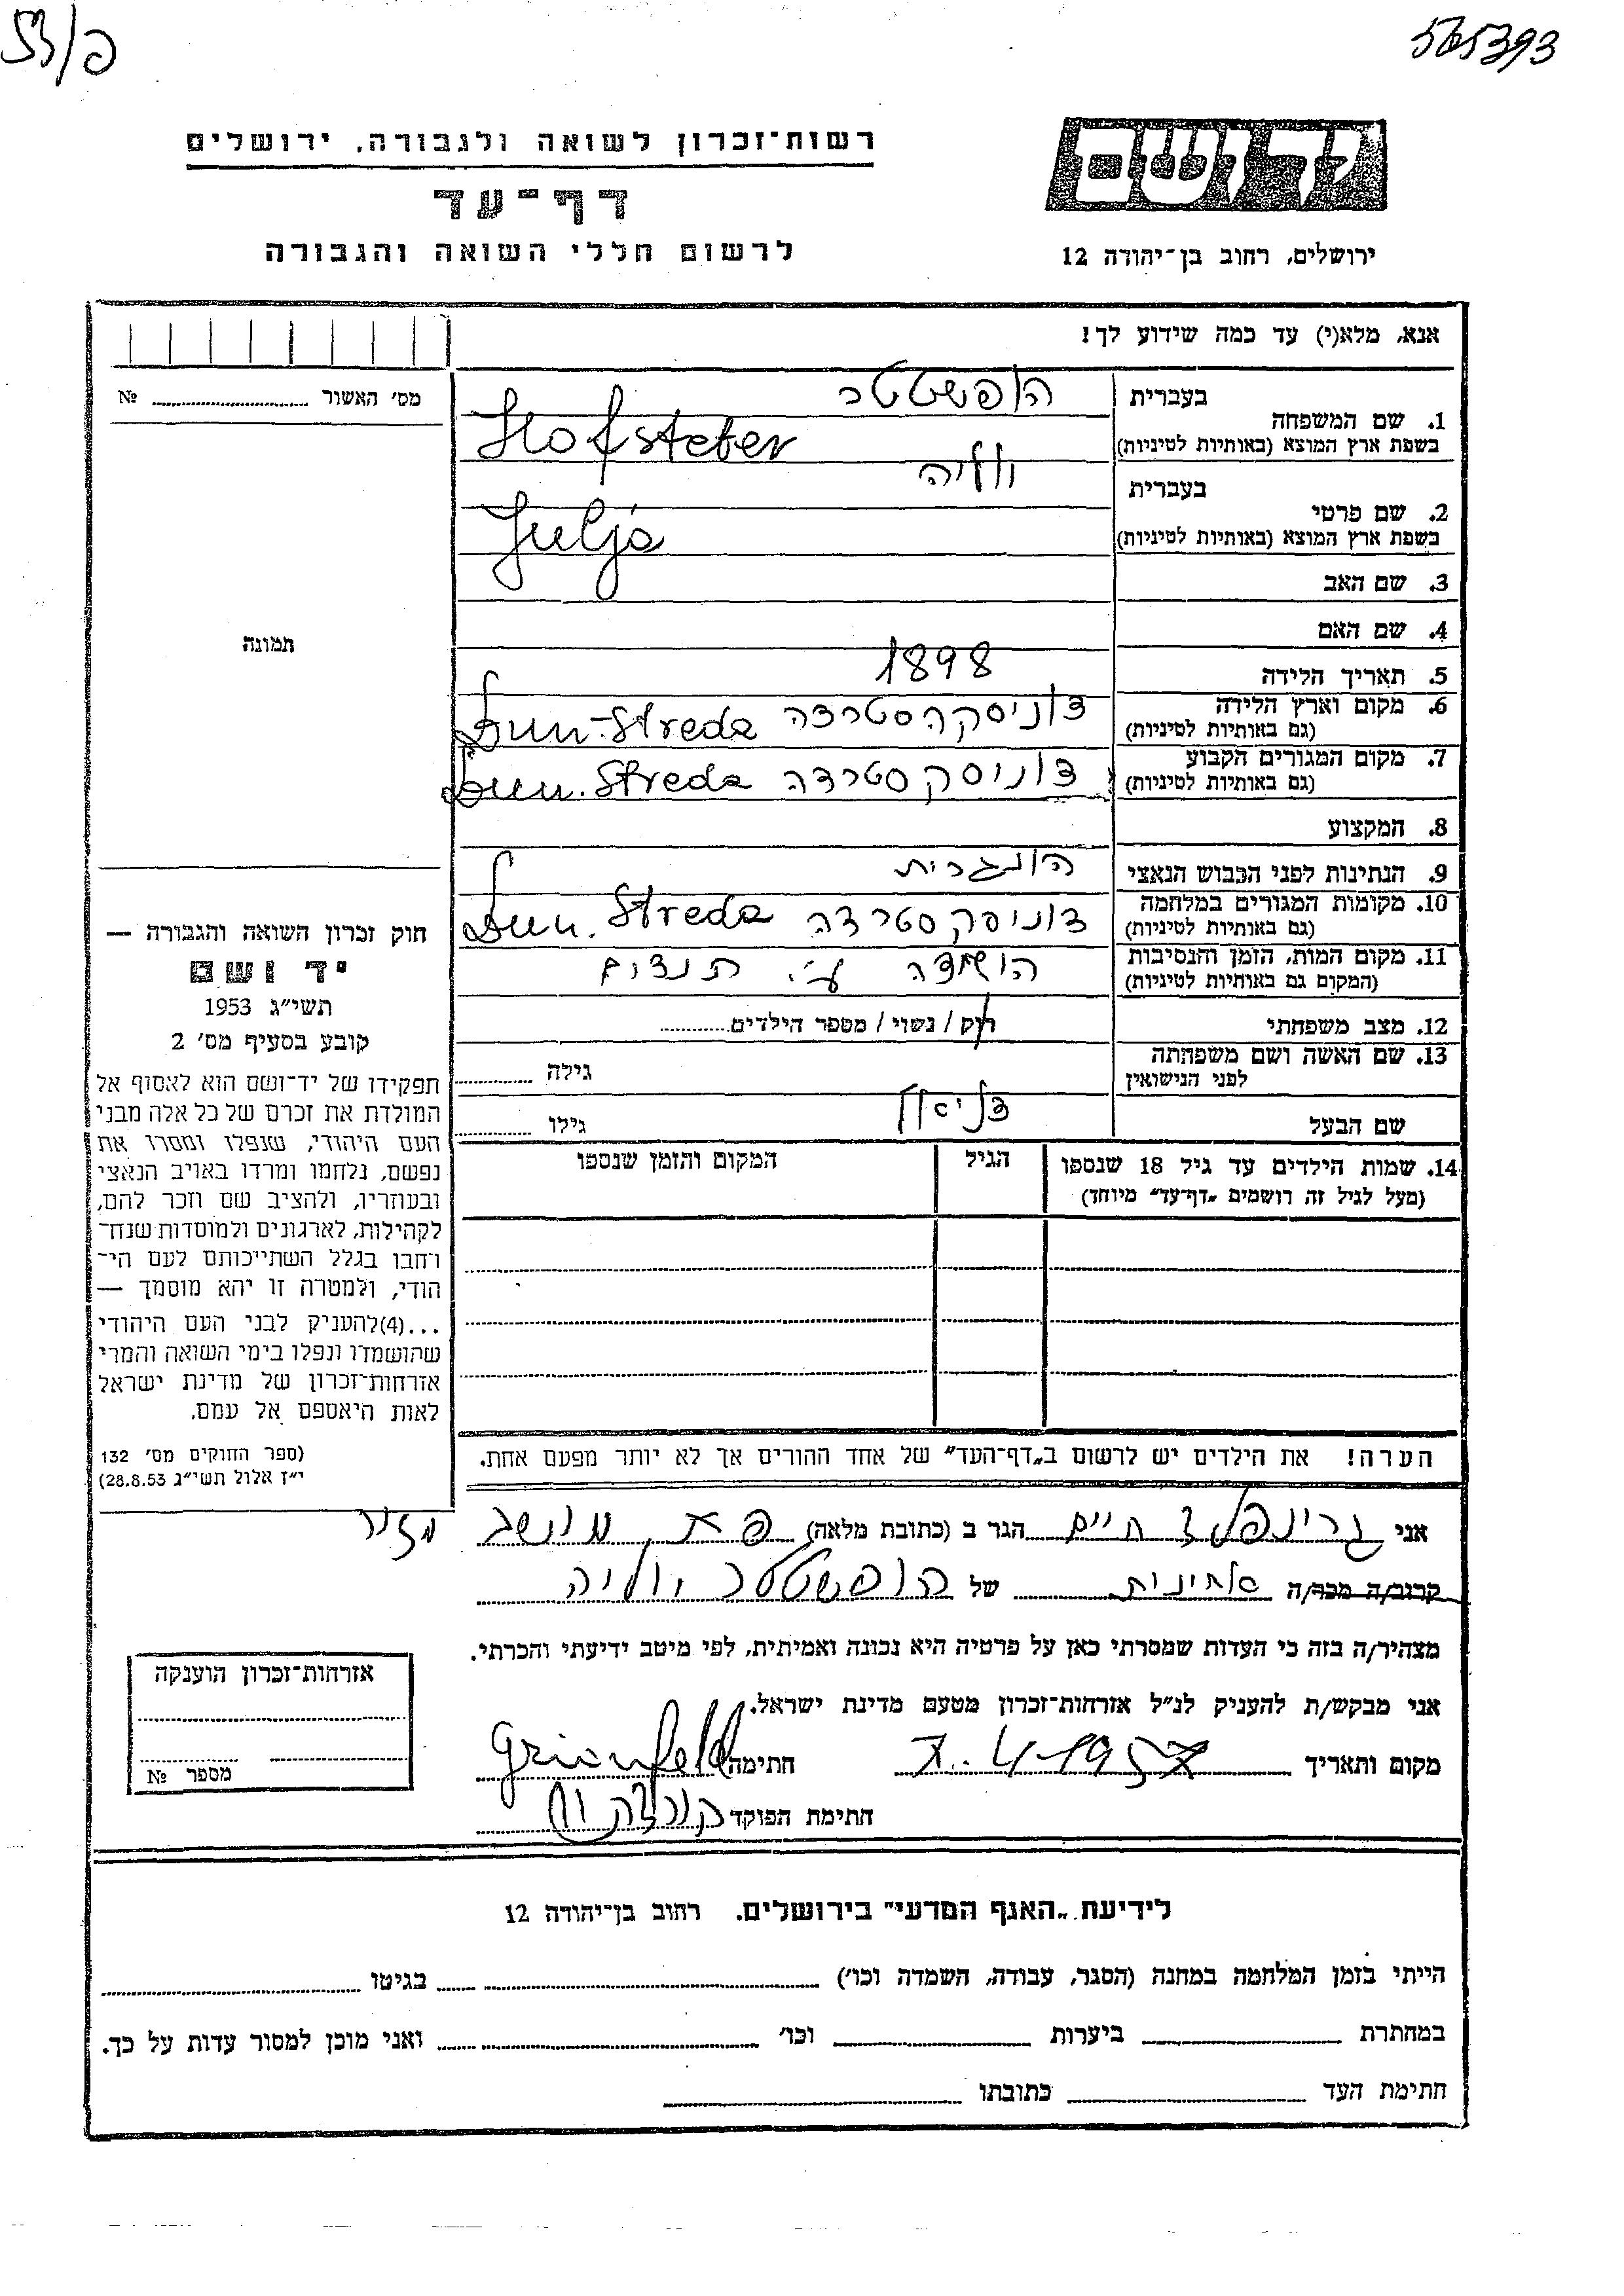 פ/53
565393
יד ושם
ירושלים, רחוב בן־יהודה 12
רשות־זכרון לשואה ולגבורה, ירושלים
דף־עד
לרשום חללי השואה והגבורה
אנא, מלא(י) עד כמה שידוע לך!
1. שם המשפחה
בעברית הופשטטר
בשפת ארץ המוצא (באותיות לטיניות) Hofsteter
2. שם פרטי
בעברית יוליה
בשפת ארץ המוצא (באותיות לטיניות) Julja
3. שם האב
4. שם האם
5. תאריך הלידה 1898
6. מקום וארץ הלידה
(גם באותיות לטיניות) דוניסקהסטרדה Dun-Streda
7. מקום המגורים הקבוע
(גם באותיות לטיניות) דוניסקסטרדה Dun. Streda
8. המקצוע
9. הנתינות לפני הכבוש הנאצי הונגרית
10. מקומות המגורים במלחמה
(גם באותיות לטיניות) דוניסקסטרדה Dun. Streda
11. מקום המות, הזמן והנסיבות
(המקום גם באותיות לטיניות) הושמדה ע"י
12. מצב משפחתי רוק / נשוי / מספר הילדים
13. שם האשה ושם משפחתה
לפני הנישואין גילה
שם הבעל גילו
14. שמות הילדים עד גיל 18 שנספו
(מעל לגיל זה רושמים „דף־עד" מיוחד)
הגיל
המקום והזמן שנספו
הערה! את הילדים יש לרשום ב„דף־העד" של אחד ההורים אך לא יותר מפעם אחת.
מס' האשור №
תמונה
חוק זכרון השואה והגבורה —
יד ושם
תשי״ג 1953
קובע בסעיף מס' 2
תפקידו של יד־ושם הוא לאסוף אל
המולדת את זכרם של כל אלה מבני
העם היהודי, שנפלו ומסרו את
נפשם, נלחמו ומרדו באויב הנאצי
ובעוזריו, ולהציב שם וזכר להם,
לקהילות, לארגונים ולמוסדות שנח־
רבו בגלל השתייכותם לעם הי־
הודי, ולמטרה זו יהא מוסמך —
...(4) להעניק לבני העם היהודי
שהושמדו ונפלו בימי השואה והמרי
אזרחות־זכרון של מדינת ישראל
לאות היאספם אל עמם.
(ספר החוקים מס' 132
י״ז אלול תשי״ג 28.8.53)
אני גרינפלד חיים הגר ב (כתובת מלאה) פ"ת
קרוב/ה מכר/ה אחינית של הופשטטר יוליה
מצהיר/ה בזה כי העדות שמסרתי כאן על פרטיה היא נכונה ואמיתית, לפי מיטב ידיעתי והכרתי.
אני מבקש/ת להעניק לנ״ל אזרחות־זכרון מטעם מדינת ישראל.
מקום ותאריך 7.4.1957 חתימה Grünfeld
חתימת הפוקד
אזרחות־זכרון הוענקה
מספר №
לידיעת „האגף המדעי" בירושלים. רחוב בן־יהודה 12
הייתי בזמן המלחמה במחנה (הסגר, עבודה, השמדה וכו') בגיטו
במחתרת ביערות וכו' ואני מוכן למסור עדות על כך.
חתימת העד כתובתו